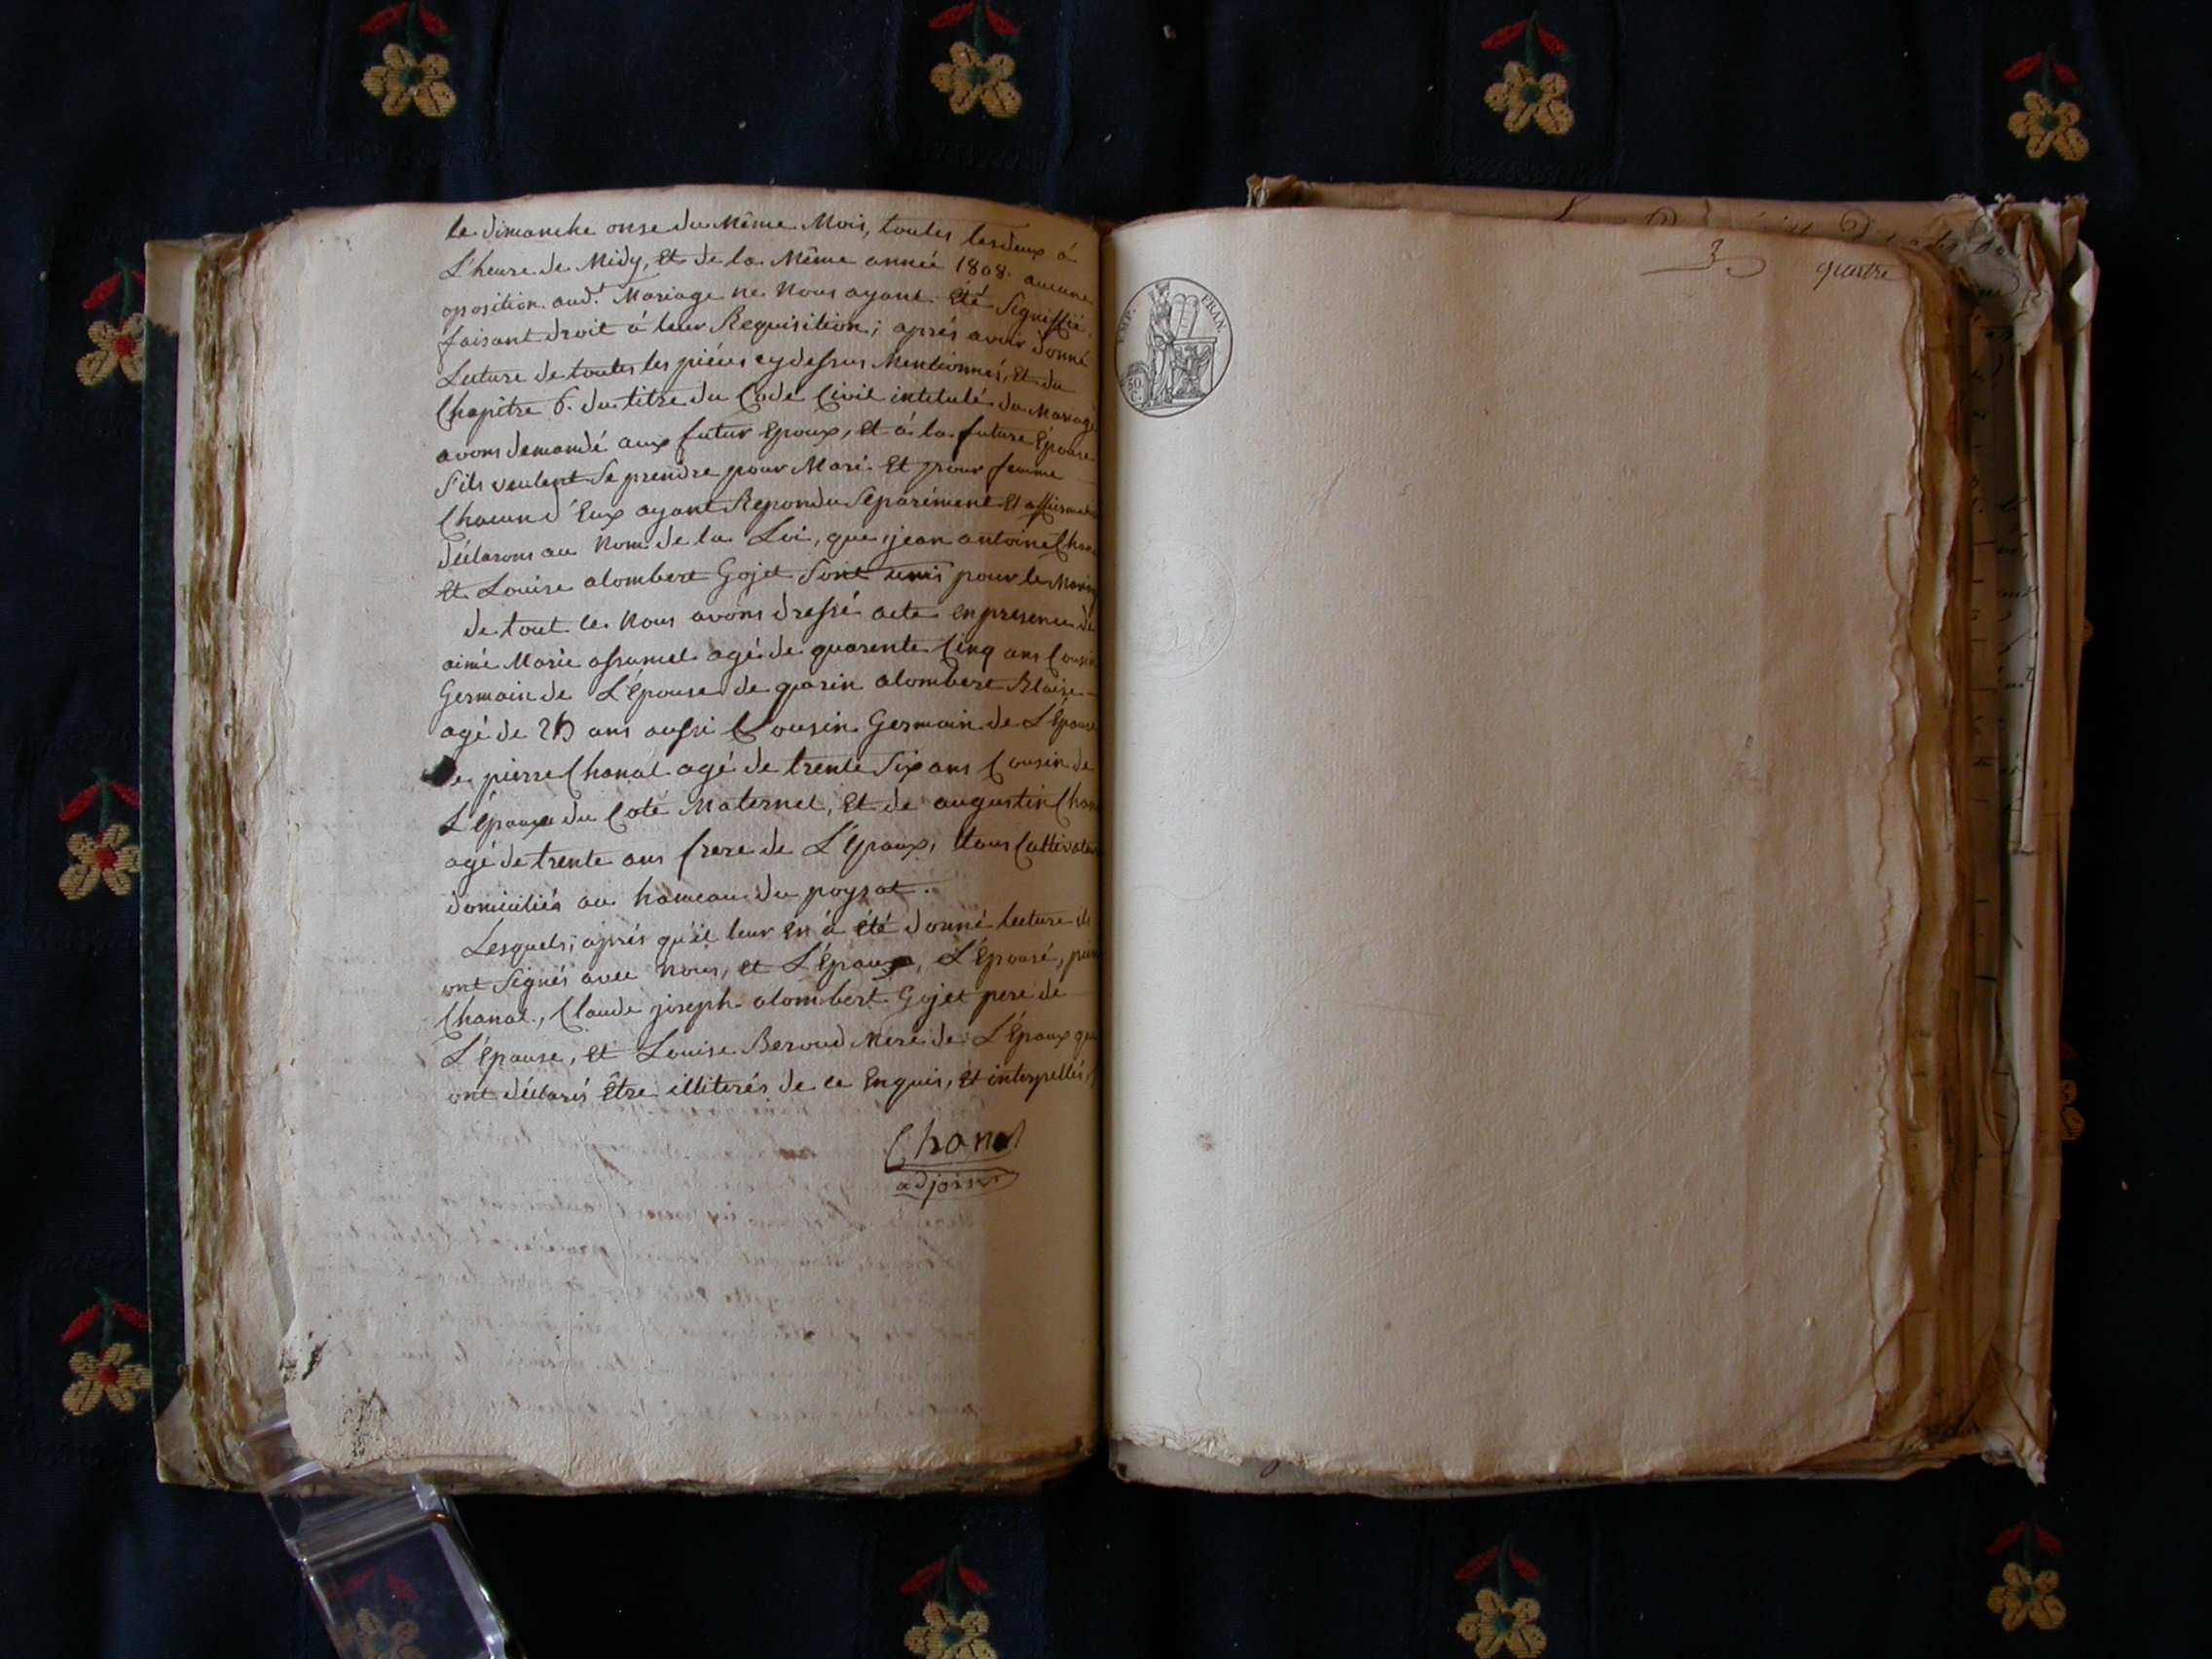 le dimanche onse du Même Mois, toutes lesdeux à
L'heure de Midy, et de la Même année 1808. aucune
oposition aud.t Mariage ne Nous ayant été Signiffié,
faisant droit à leur Requisition; aprés avoir donné
Lecture de toutes les piéces cydessus Mentionnés, et du
Chapitre 6. du titre du Code Civil intitulé du Mariage
avons demandé aux futur Epoux, et à la future Épouse
S'ils veulent Se prendre pour Mari et pour femme
Chacun d'Eux ayant Repondu Séparément et affirmati
déclarons au Nom de la Loi, que jean antoine Chan
et Louise alombert Gojet Sont unis pour le Maria
de tout ce Nous avons dressé acte en presence de
aimé Marie assumel agé de quarente Cinq ans Cousin
Germain de L'épouse de alombert Blaise
agé de ans aussi Cousin Germain de L'Épouse
de pierre Chanal agé de trente Six ans Cousin de
L'épouse du Coté Maternel, et de augustin Chan
agé de trente ans frere de L'Epoux, tous Cultivateu
domiciliés au hameau du poysat.
Lesquels, aprés qu'il leur en à été donné lecture
ont Signés avec Nous, et L'épouse, pier
Chanal, Claude joseph alombert Gojet pere de
L'Epouse, et Louise Beroud Mere de L'Epoux qu
ont déclarés être illiterés de ce Enquis, et interpellés
Chanal
adjoint
3
quatre
EMP. FRAN.
50 C.